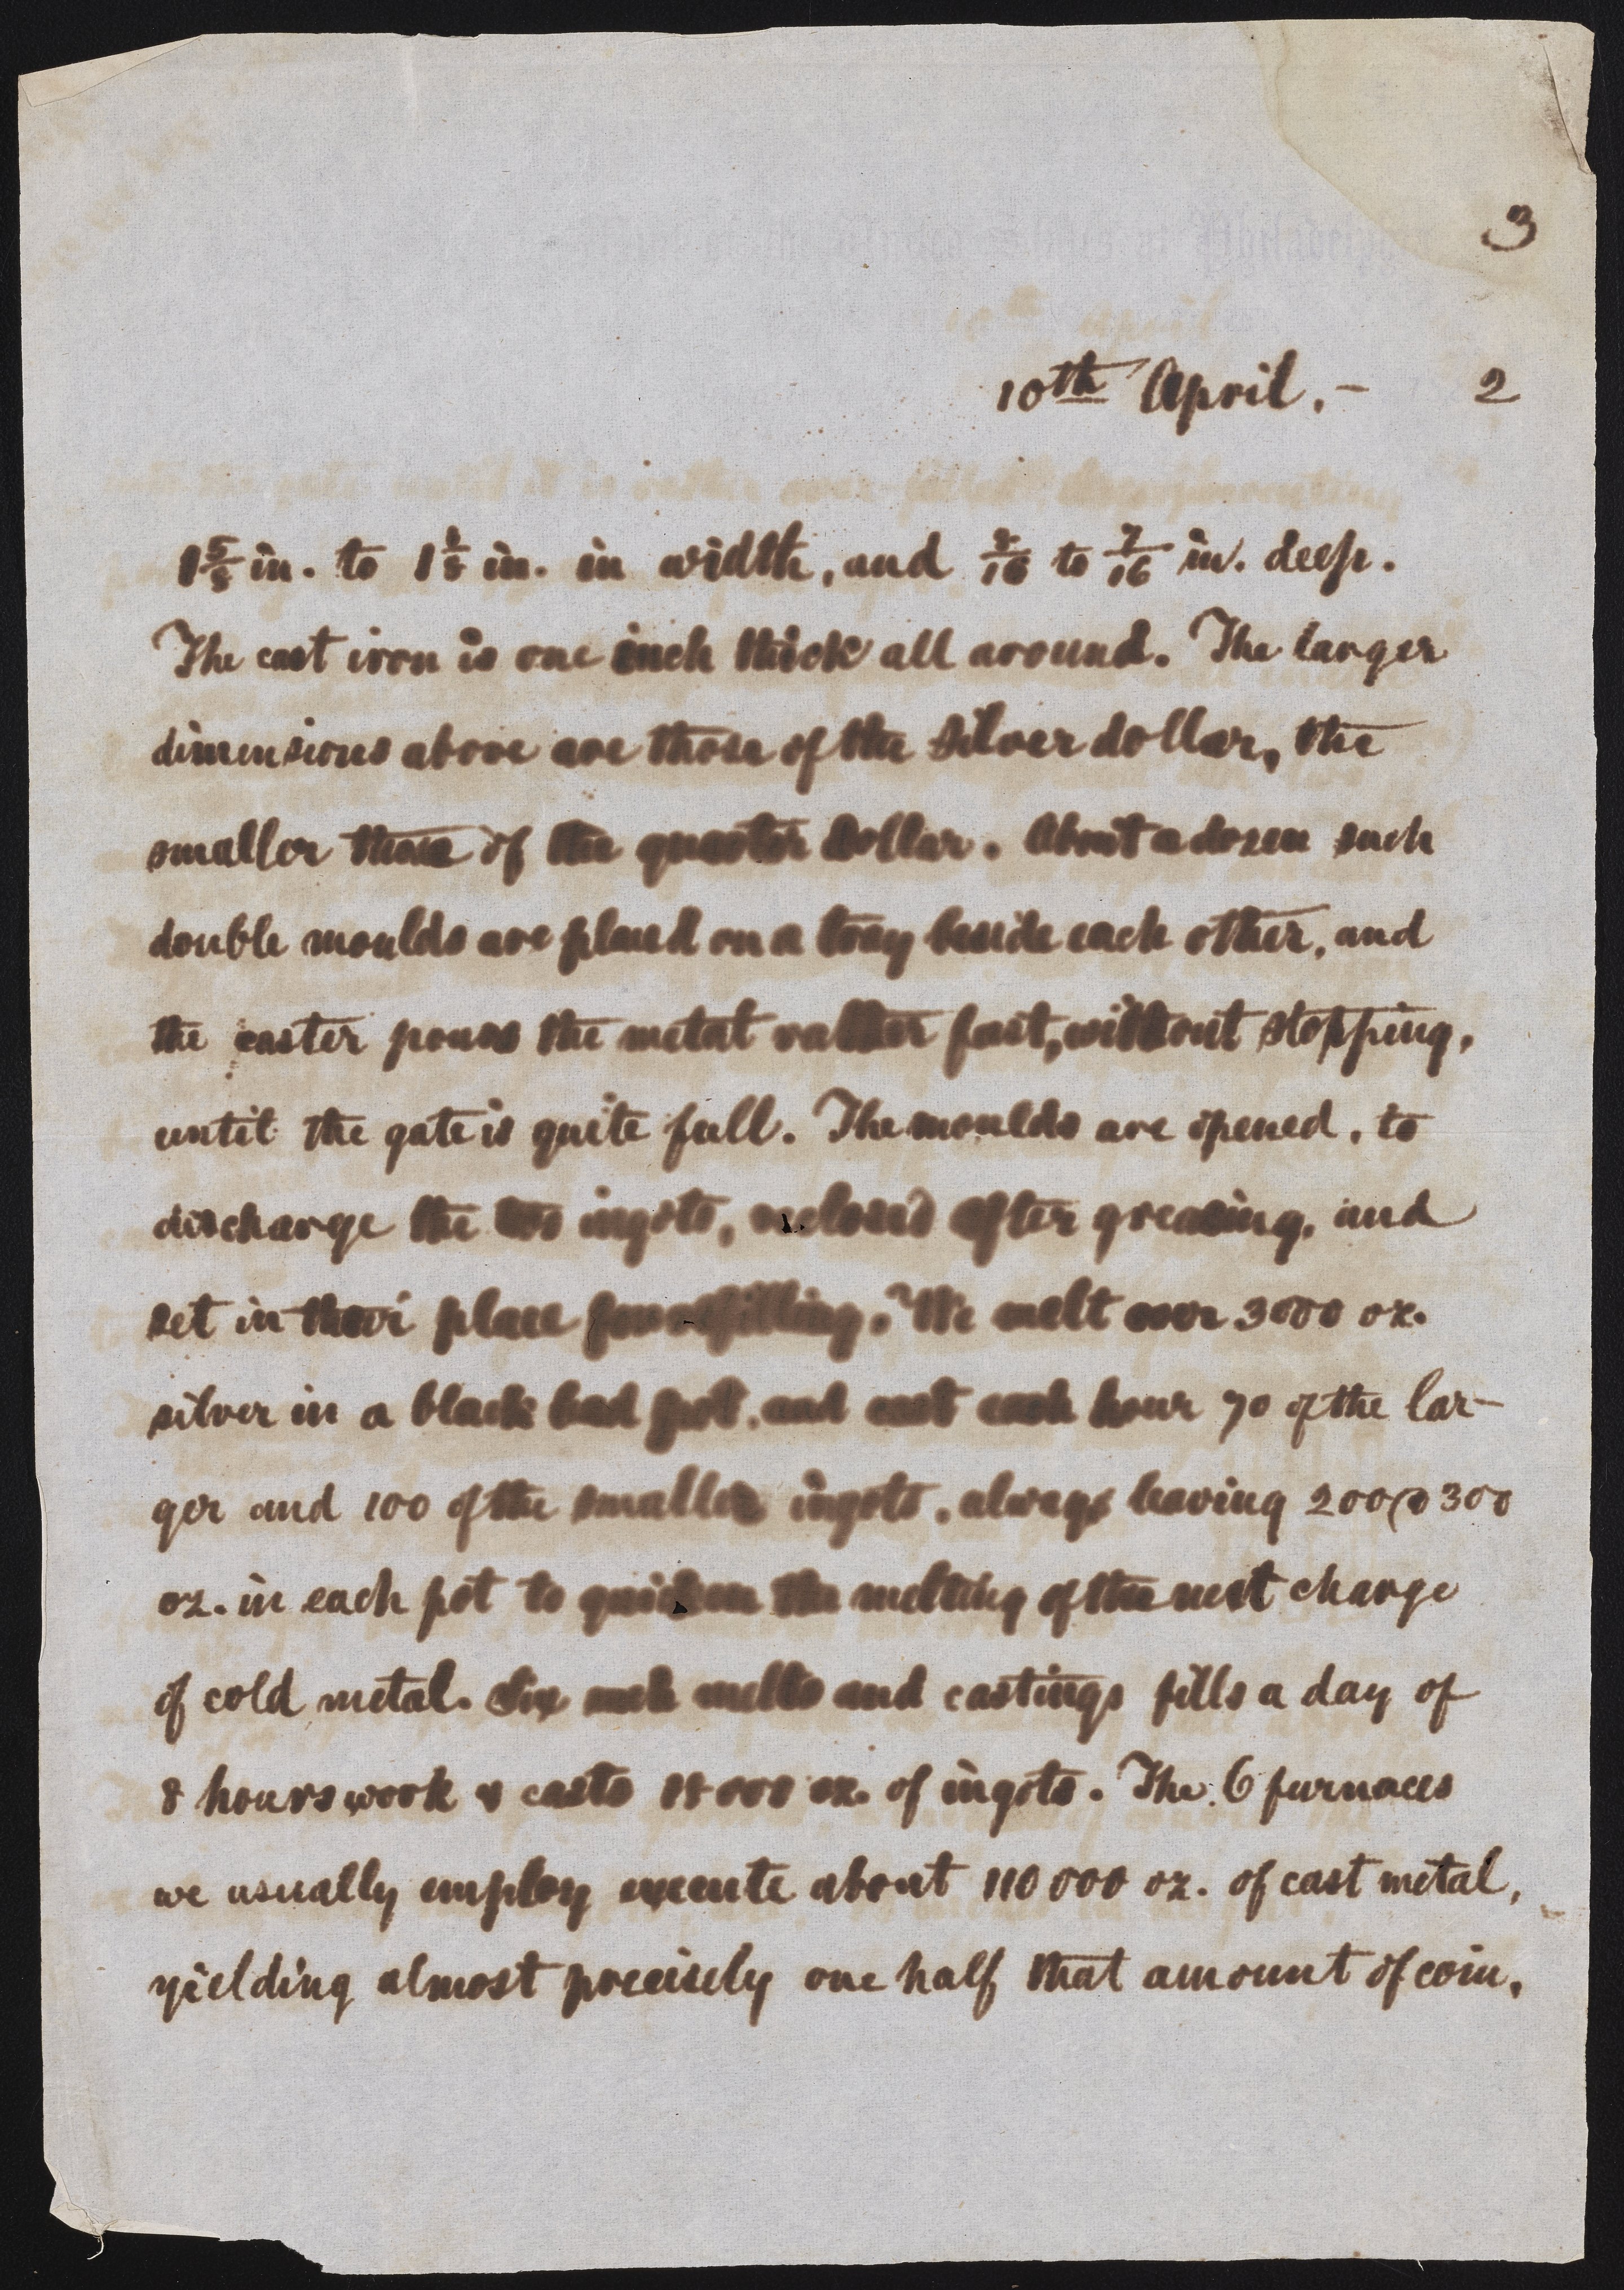 3
10th April. - 2
1 5/8 in. to 1 1/8 in. in width, and to 7/16 in. deep.
The cast iron is one inch thick all around. The larger
dimensions above are those of the Silver dollar, the
smaller those of the quarter dollar. About a dozen such
double moulds are placed on a tray beside each other, and
the caster pours the metal rather fast, without stopping,
until the gate is quite full. The moulds are opened, to
discharge the two ingots, reclosed after greasing, and
set in their place for refilling. We melt over 3000 oz.
silver in a black lead pot, and cast each hour 70 of the lar-
ger and 100 of the smaller ingots, always leaving 200 @ 300
oz. in each pot to quicken the melting of the next charge
of cold metal. Six such melts and castings fills a day of
8 hours work & casts 18000 oz. of ingots. The 6 furnaces
we usually employ execute about 110000 oz. of cast metal,
yielding almost precisely one half that amount of coin.